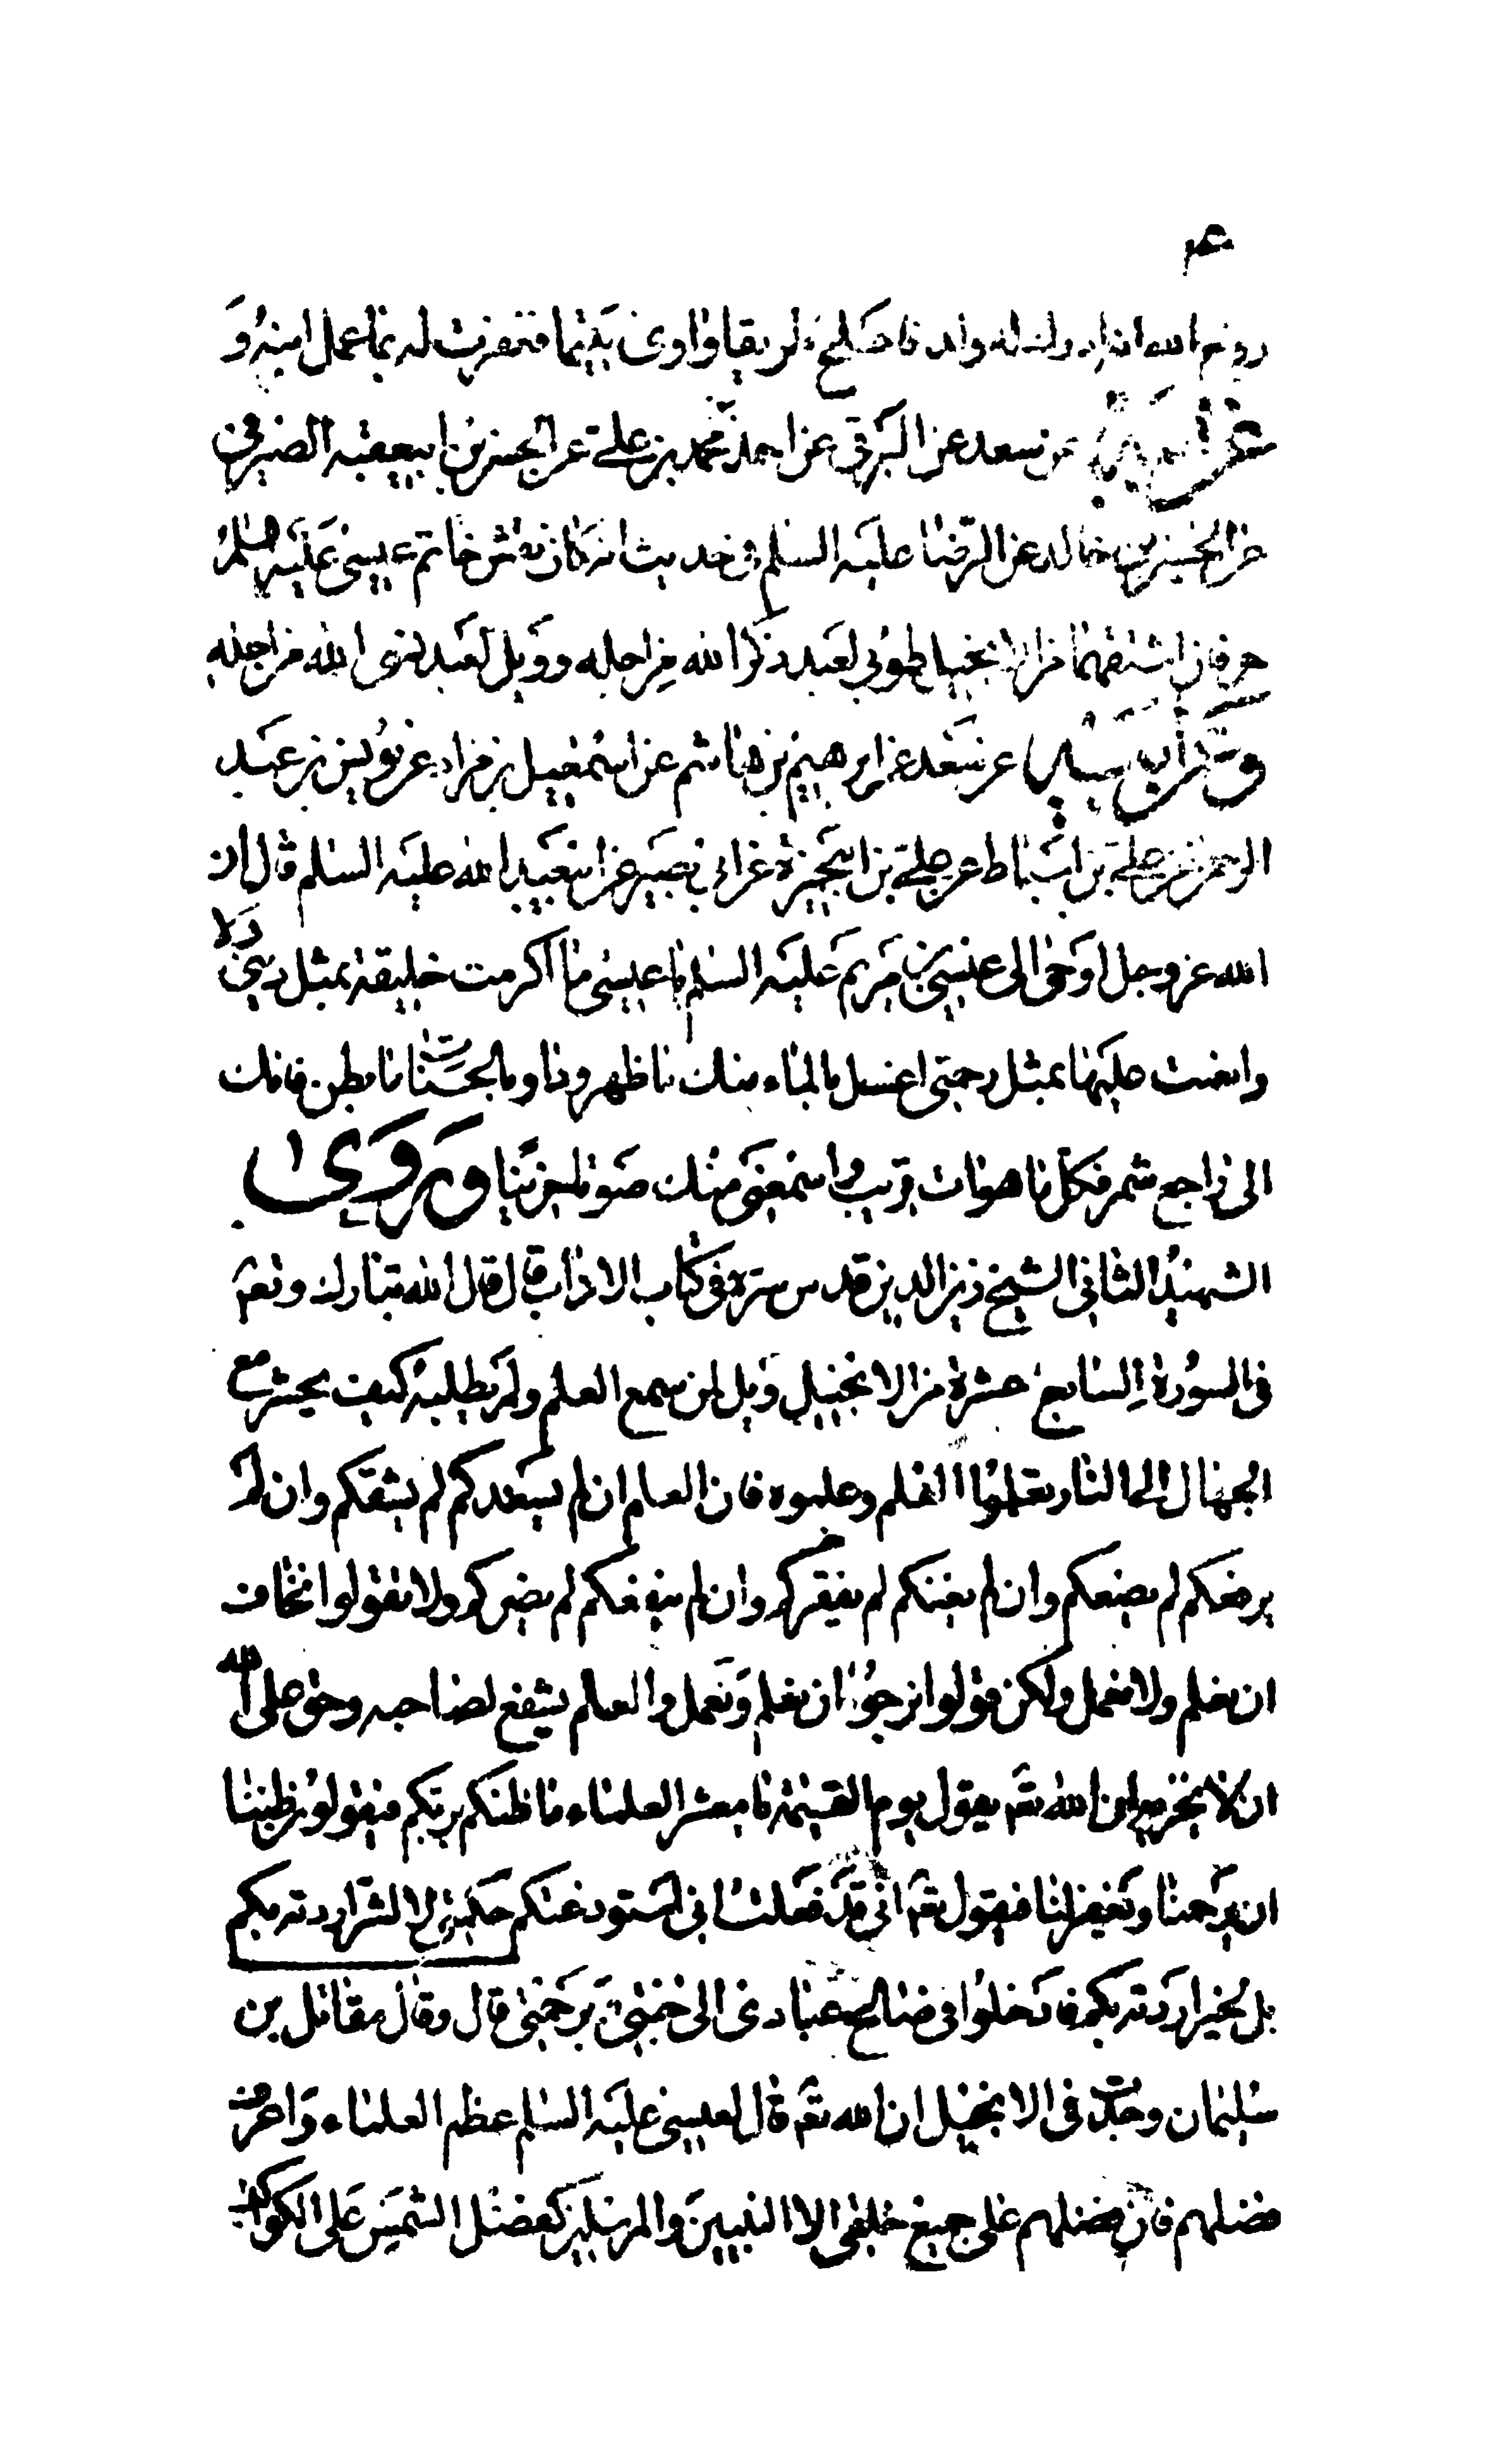 روح الله انه ادرك له ولد فاصلح طريقا واوى يتيما فغفرت له بما عمل ابنه و
عن ابيه عن سعد عن البرقي عن احمد بن محمد بن علي عن الحسن بن ابي عقبة الصيرفي
عن الحسين بن خالد عن الرضا عليه السلم في حديث انه كان نقش خاتم عيسى عليه السلم
حرفان اشتقهما من الانجيل طوبى لعبد ذكر الله من اجله وويل لعبد نسى الله من اجله
وعن ابيه عن سعد عن ابرهيم بن هاشم عن اسمعيل بن مراد عن يونس بن عبد
الرحمن عن علي بن اسباط عن علي بن ابي حمزة عن ابي بصير عن ابي عبد الله عليه السلم قال ان
الله عز وجل اوحى الى عيسى بن مريم عليه السلم يا عيسى ما اكرمت خليقة بمثل ديني ولا
وانعمت عليها بمثل رحمتي اغسل بالماء منك ما ظهر وداو بالحسنات ما بطن فانك
الى راجع شمر فكل ما هو ات قريب واسمعني منك صوتا حزينا وروى
الشهيد الثاني الشيخ زين الدين قدس سره في كتاب الاداب قال قال الله تبارك وتع
في السورة السابع عشرة من الانجيل ويل لمن سمع العلم ولم يطلبه كيف يحشر مع
الجهال الى النار تعلموا العلم وعلموه فان العلم ان لم يسعدكم لم يشقكم وان لم
يرفعكم لم يضعكم وان لم يغنكم لم يفقركم وان لم ينفعكم لم يضركم ولا تقولوا نخاف
ان نعلم ولا نعمل ولكن قولوا نرجوا ان نعلم ونعمل والعلم يشفع لصاحبه وحق على الله
ان لا يخزيه ان الله تع يقول يوم القيمة يا معشر العلماء ما ظنكم بربكم فيقولون ظننا
ان يرحمنا ويغفر لنا فيقول تع اني قد فعلت اني استودعتكم حكمتي لا لشر اردته بكم
بل لخير اردته بكم فادخلوا في صالح عبادي الى جنتي برحمتي قال وقال مقاتل بن
سليمان وجدت في الانجيل ان الله تع قال لعيسى عليه السلم عظم العلماء واعرف
فضلهم فاني فضلتهم على جميع خلقي الا النبيين والمرسلين كفضل الشمس على الكواكب